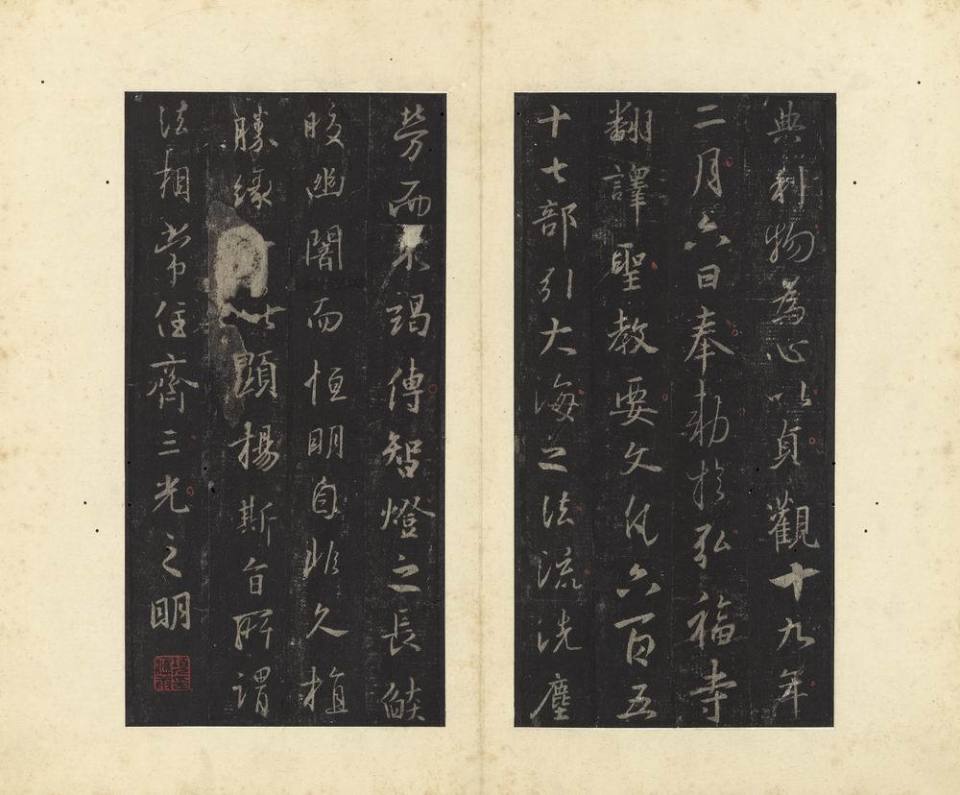 典利物為心以貞觀十九年
二月六日奉勅於弘福寺
翻譯聖教要文凡六百五
十七部引大海之法流洗塵
勞而不竭傳智燈之長燄
皎幽闇而恒明自非久植
勝緣以顯揚斯旨所謂
法相常住齊三光之明